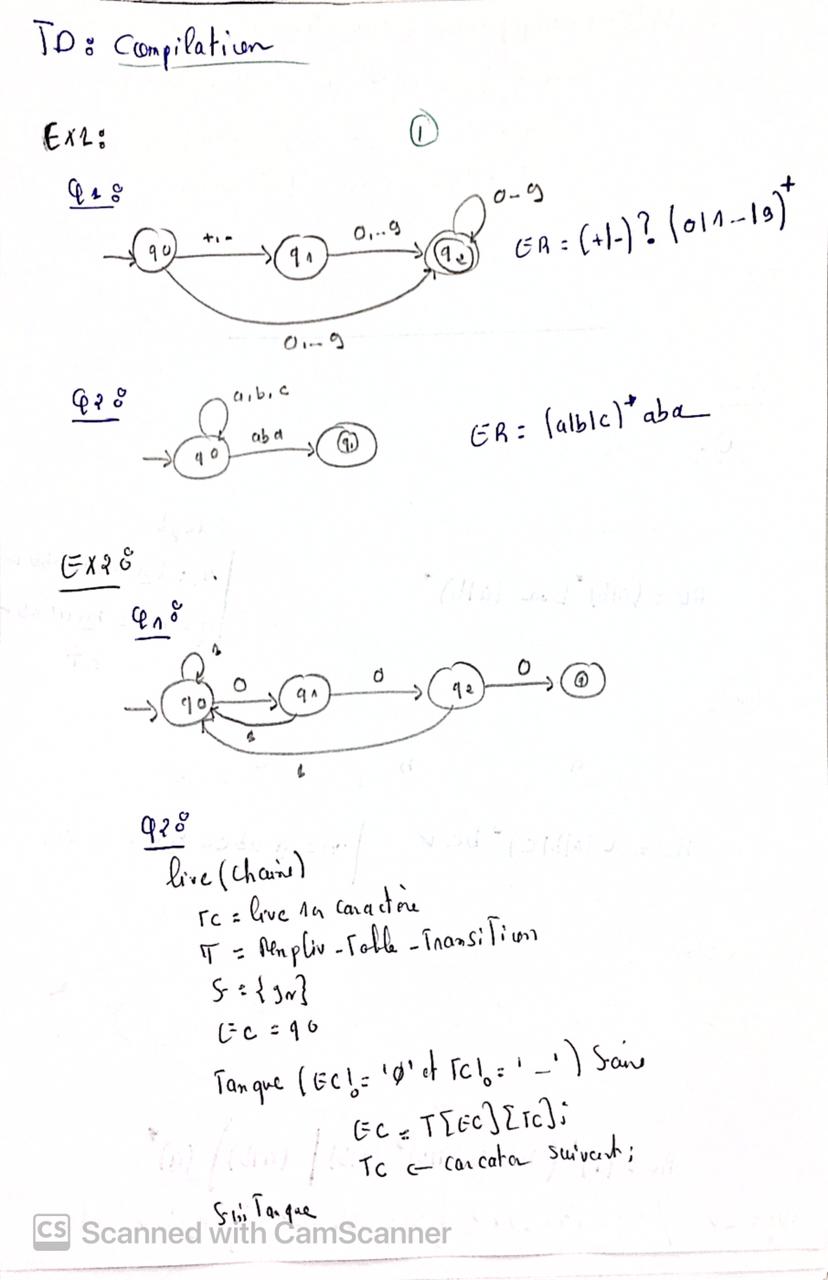 TD : Compilation
Ex1 :
①
Q1 :
0-9
q0 +,- q1 0,..9 q2
ER = (+|-)? (0|1--|9)+
0,--9
Q2 :
a,b,c
q0 aba
ER = (a|b|c)* aba
Ex2 :
Q1 :
1
q0 0 q1 0 q2 0
1
1
Q2 :
lire (chaine)
TC = lire 1er caractère
T = Remplir-Table-Transition
EC = q0
Tanque (EC != 'Ø' et TC != '_') Faire
EC = T[EC][TC];
TC ← suivant;
Fin Tanque
CS Scanned with CamScanner